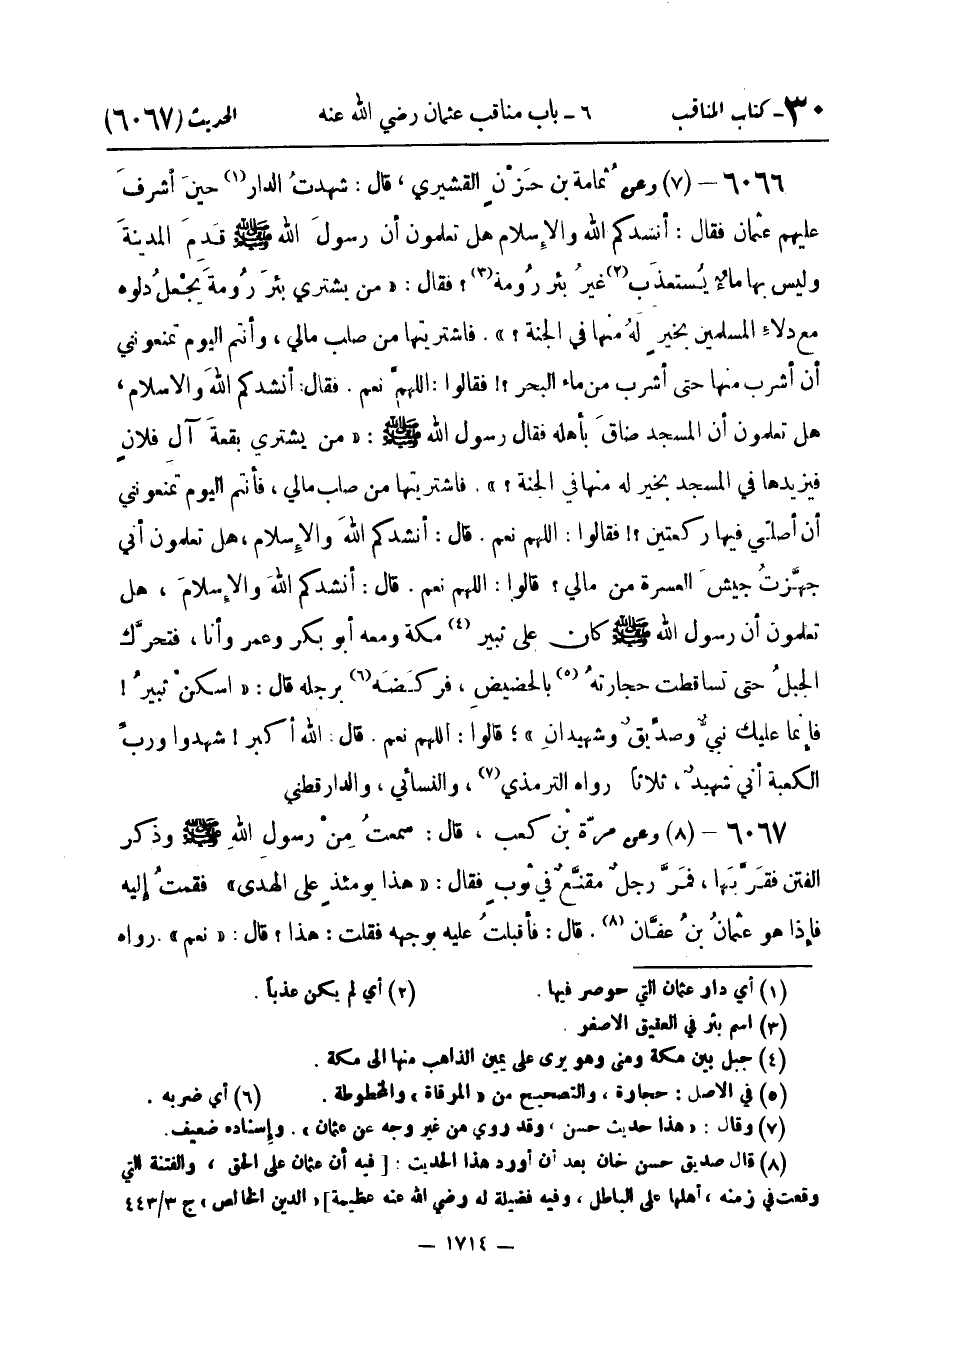 ٣٠- كتاب المناقب ٦ - باب مناقب عثمان رضي الله عنه الحديث (٦٠٦٧)
٦٠٦٦ - (٧) وعن ثُمامة بن حَزْنٍ القشيري ، قال : شهدتُ الدار(١) حينَ أشرفَ
عليهم عثمان فقال : أنشدكم الله والإسلام هل تعلمون أن رسولَ الله ﷺ قدِمَ المدينةَ
وليس بها ماءٌ يُستعذَب(٢) غيرُ بئر رُومة(٣) ؟ فقال : « من يشتري بئرَ رُومةَ يجْعلُ دلوه
مع دلاءِ المسلمين بخيرٍ لهُ منها في الجنة ؟ » . فاشتريتها من صلب مالي ، وأنتم اليوم تمنعونني
أن أشرب منها حتى أشرب من ماء البحر ؟! فقالوا : اللهمَّ نعم . فقال: أنشدكم اللهَ والاسلام ،
هل تعلمون أن المسجد ضاقَ بأهله فقال رسول الله ﷺ : « من يشتري بقعةَ آلِ فلانٍ
فيزيدها في المسجد بخير له منها في الجنة ؟ » . فاشتريتها من صلب مالي ، فأنتم اليوم تمنعونني
أن أصلّي فيها ركعتين ؟! فقالوا : اللهم نعم . قال : أنشدكم اللهَ والإسلام ، هل تعلمون أني
جهَّزتُ جيشَ العسرة من مالي ؟ قالوا : اللهم نعم . قال : أنشدكم اللهَ والإسلامَ ، هل
تعلمون أن رسول الله ﷺ كان على ثبير (٤) مكة ومعه أبو بكر وعمر وأنا ، فتحرَّك
الجبلُ حتى تساقطت حجارتهُ (٥) بالحضيضِ ، فركَضَه(٦) برجله قال : « اسكنْ ثبيرُ !
فإنما عليك نبيٌّ وصدِّيقٌ وشهيدانِ » ؛ قالوا : اللهم نعم . قال : الله أكبر ! شهدوا وربِّ
الكعبة أني شهيدٌ ، ثلاثاً رواه الترمذي(٧) ، والنسائي ، والدارقطني
٦٠٦٧ - (٨) وعن مرّة بْنِ كعب ، قال : سمعتُ مِنْ رسولِ اللهِ ﷺ وذكر
الفتن فقرَّبَها ، فمَرَّ رجلٌ مقنَّعٌ في ثوبٍ فقال : « هذا يومئذٍ على الهدى » فقمتُ إليه
فإذا هو عثمانُ بنُ عفَّان (٨) . قال : فأقبلتُ عليه بوجهه فقلت : هذا ؟ قال : « نعم » . رواه
(١) أي دار عثمان التي حوصر فيها . (٢) أي لم يكن عذباً .
(٣) اسم بئر في العقيق الاصغر .
(٤) جبل بين مكة ومنى وهو يرى على يمين الذاهب منها الى مكة .
(٥) في الاصل : حجارة ، والتصحيح من « المرقاة » والمخطوطة . (٦) أي ضربه .
(٧) وقال : « هذا حديث حسن ، وقد روي من غير وجه عن عثمان » . وإسناده ضعيف .
(٨) قال صديق حسن خان بعد أن أورد هذا الحديث : [ فيه أن عثمان على الحق ، والفتنة التي
وقعت في زمنه ، أهلها على الباطل ، وفيه فضيلة له رضي الله عنه عظيمة ] « الدين الخالص » ج ٤٤٣/٣
— ١٧١٤ —